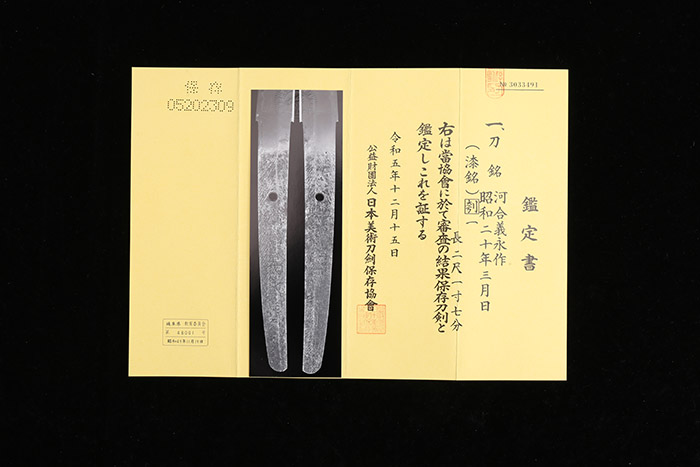 № 3033491
鑑定書
一、刀 銘 河合義永作
昭和二十年三月日
(漆銘)刻一
長二尺一寸七分
右は當協會に於て審査の結果保存刀剣と
鑑定しこれを証する
令和五年十二月十五日
公益財團法人 日本美術刀剣保存協會
保存
05202309
岐阜県 教育委員会